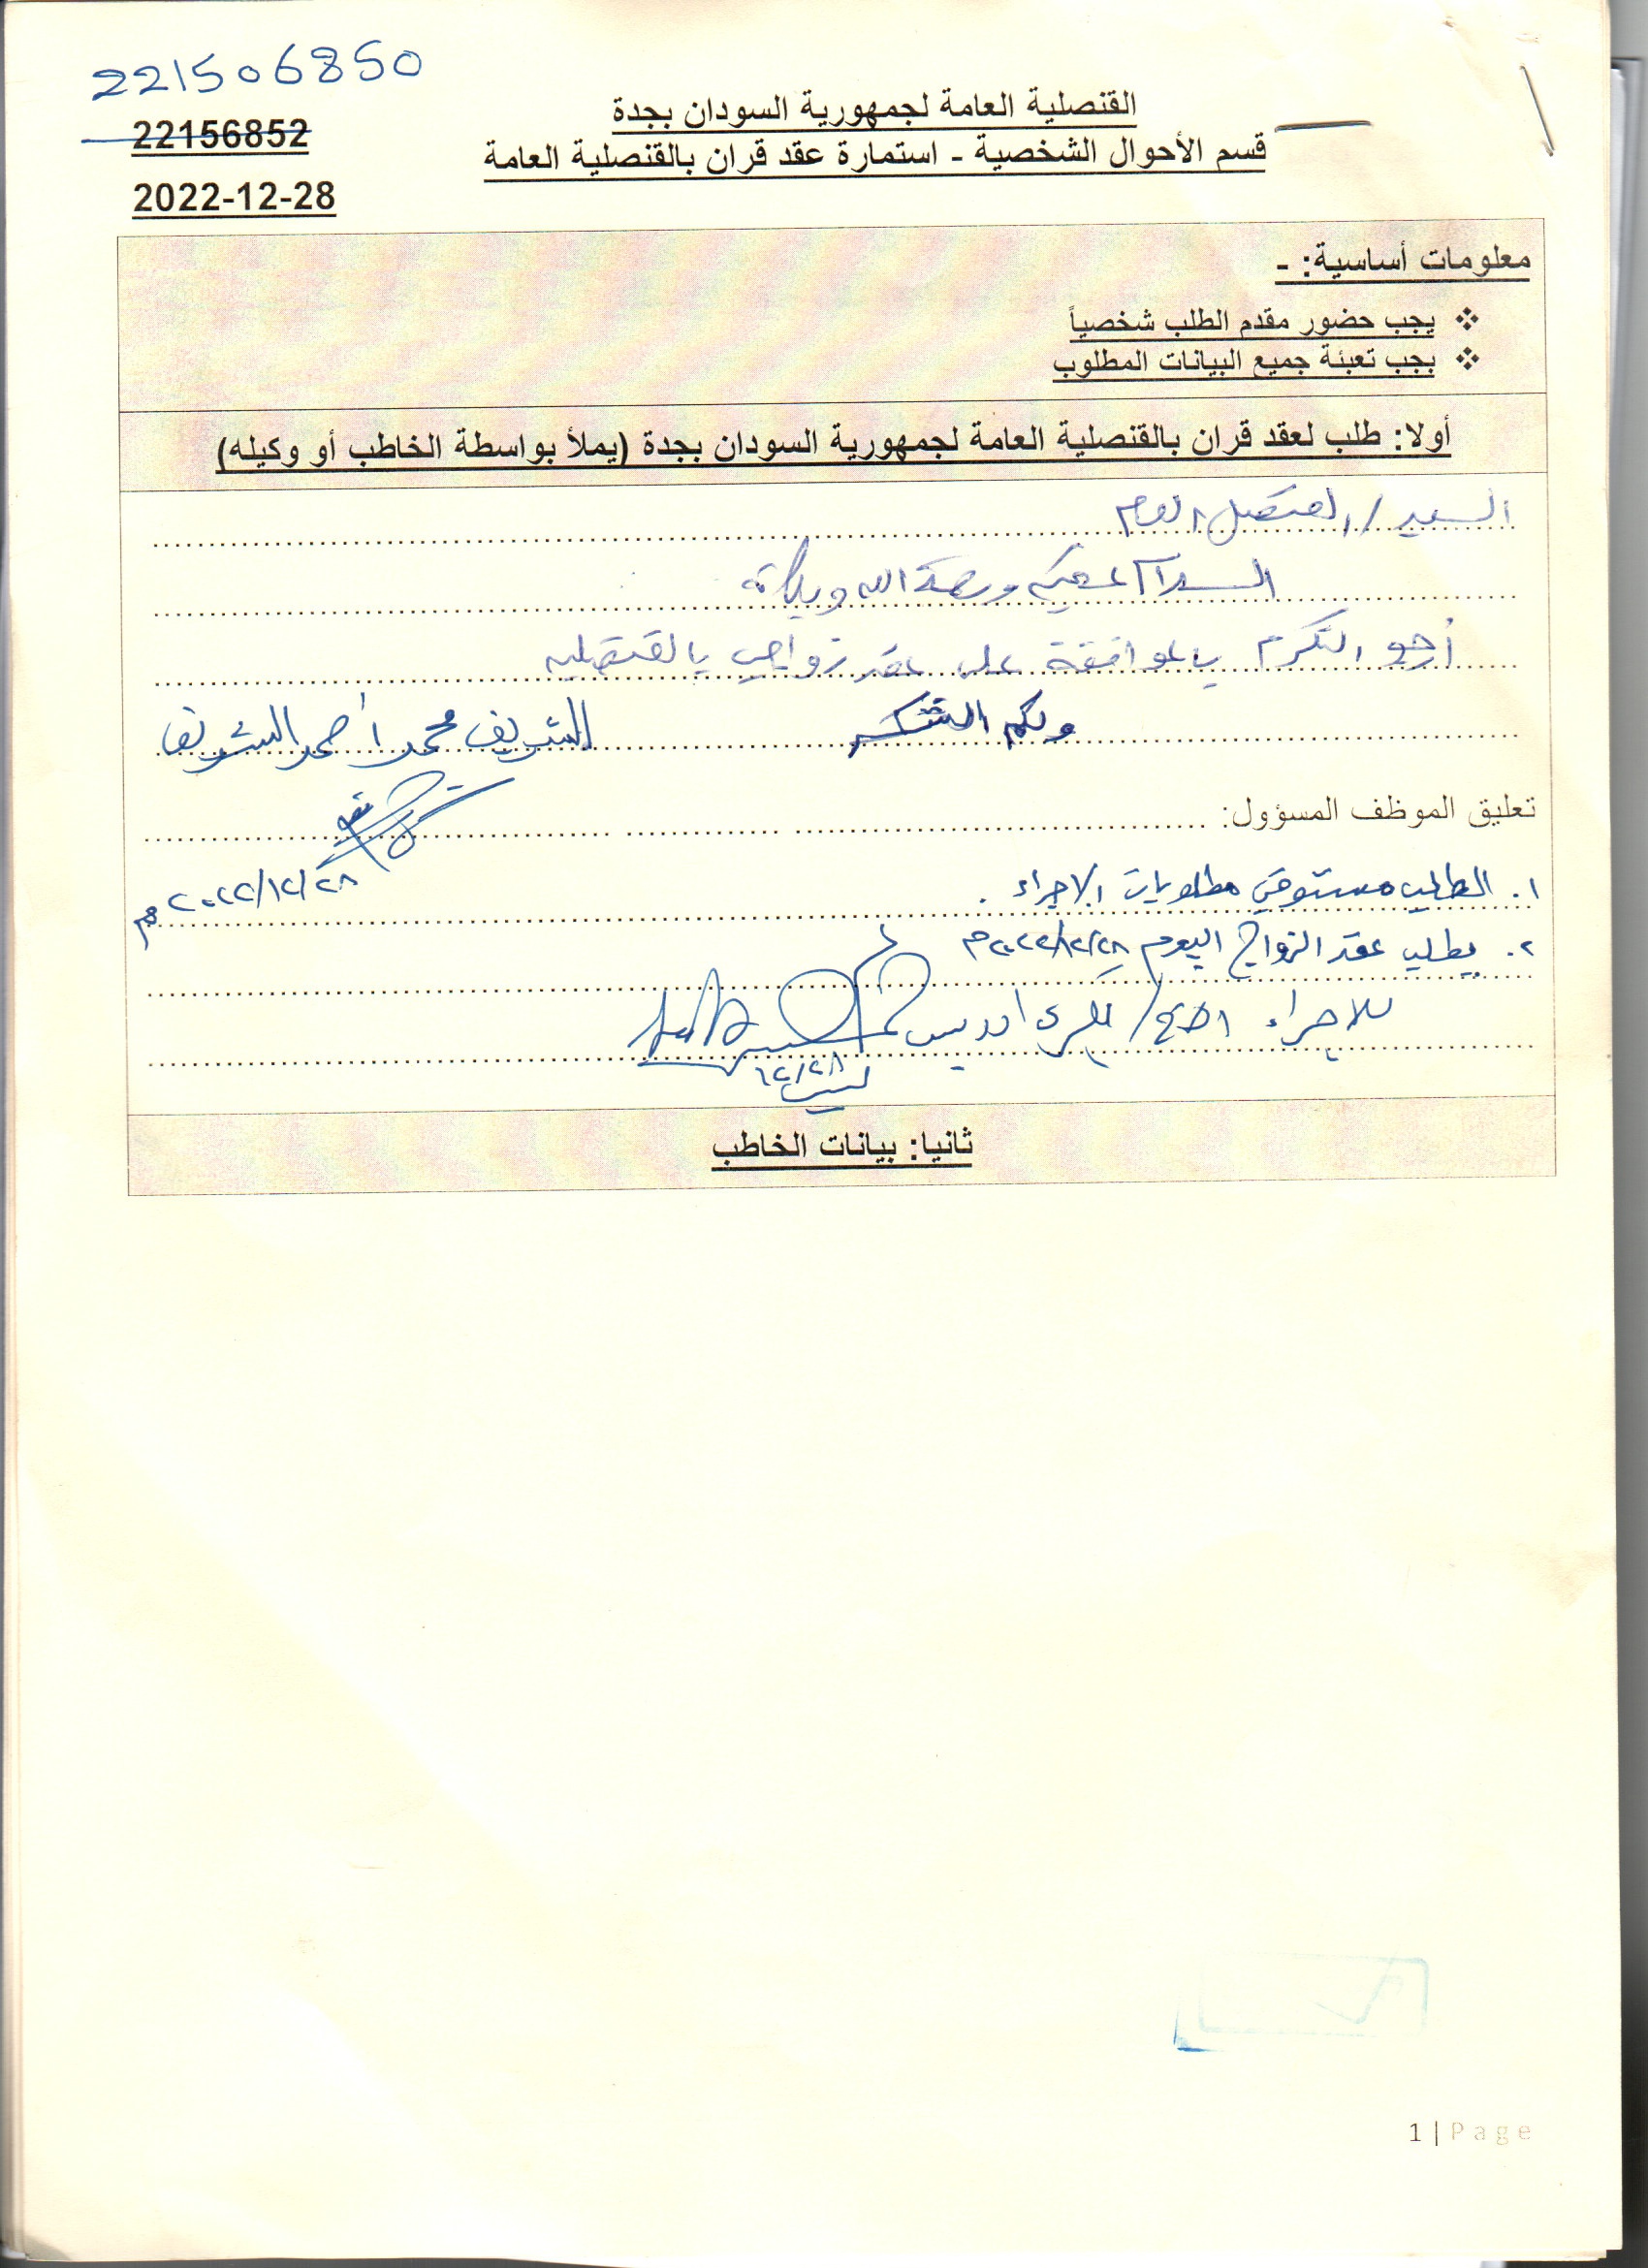 221506850
22156852
2022-12-28
القنصلية العامة لجمهورية السودان بجدة
قسم الأحوال الشخصية - استمارة عقد قران بالقنصلية العامة
معلومات أساسية: -
❖ يجب حضور مقدم الطلب شخصياً
❖ بجب تعبئة جميع البيانات المطلوب
أولا: طلب لعقد قران بالقنصلية العامة لجمهورية السودان بجدة (يملأ بواسطة الخاطب أو وكيله)
السيد / القنصل العام
السلام عليكم ورحمة الله وبركاته
أرجو التكرم بالموافقة على عقد زواجي بالقنصليه
ولكم الشكر
الشريف محمد أحمد الشريف
تعليق الموظف المسؤول:
٢٠٢٢/١٢/٢٨م
١. الطلب مستوفي مطلوبات الإجراء.
٢. يطلب عقد الزواج اليوم ٢٠٢٢/١٢/٢٨م
للاجراء الاخ / بكري ادريس
١٢/٢٨
ثانيا: بيانات الخاطب
1 | Page